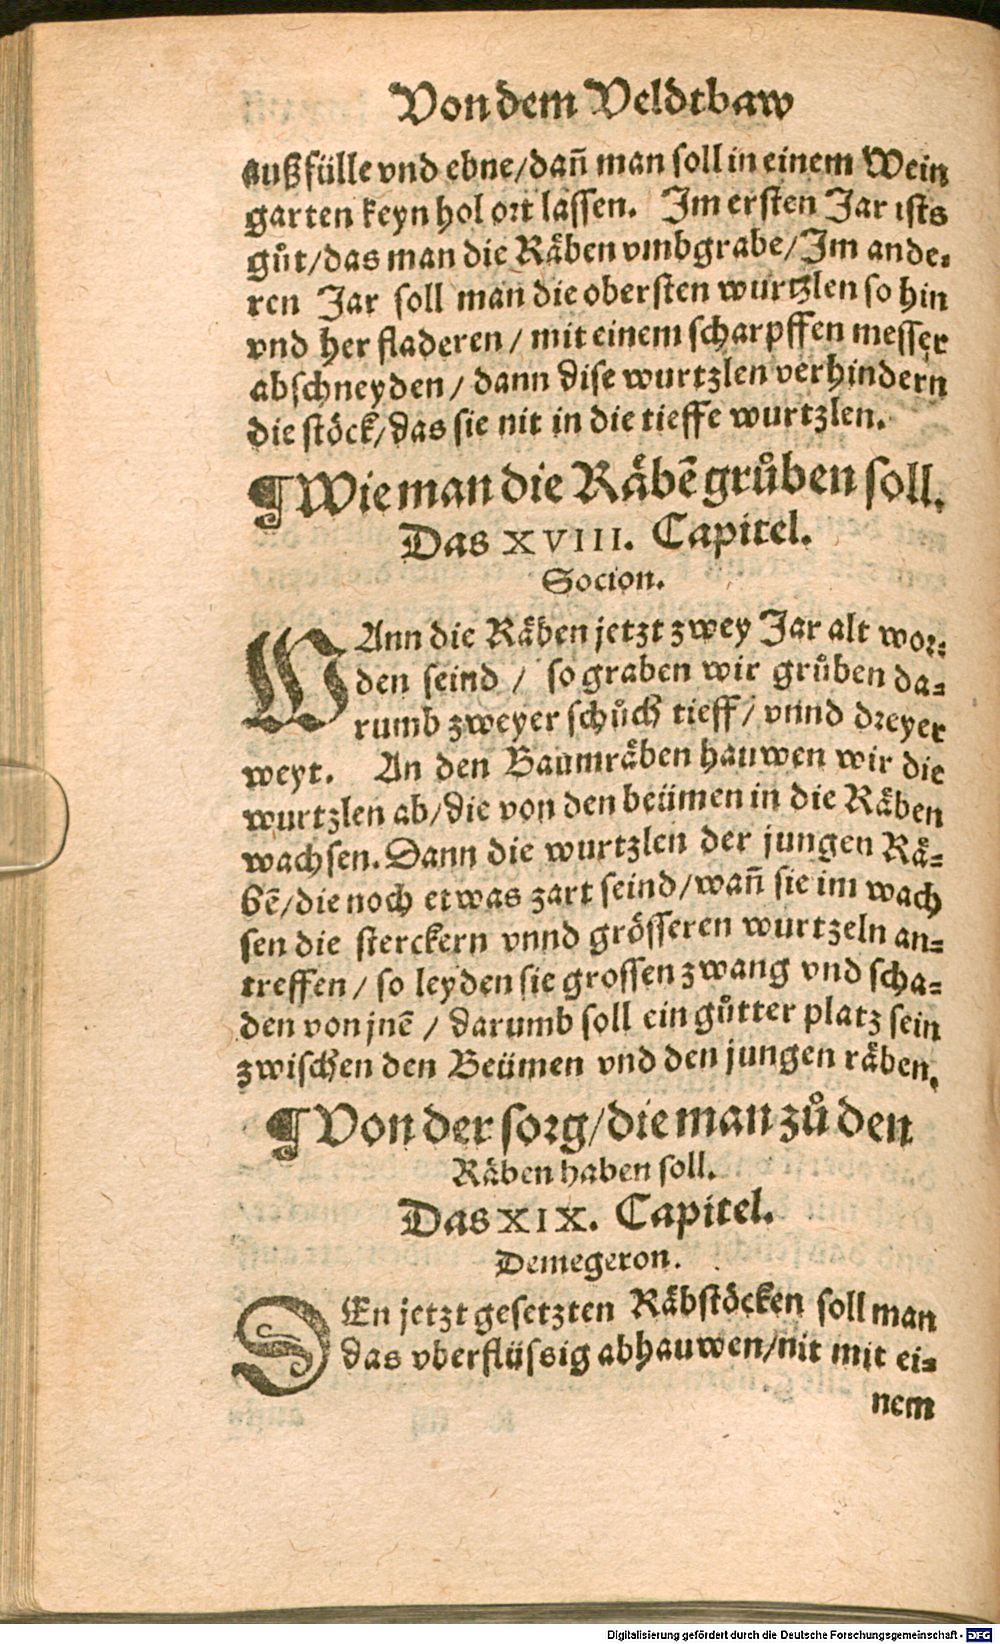 Von dem Veldtbaw
außfülle vnd ebne/dañ man soll in einem Wein
garten keyn hol ort lassen. Im ersten Jar ists
gůt/das man die Räben vmbgrabe/Im ande-
ren Jar soll man die obersten wurtzlen so hin
vnd her fladeren / mit einem scharpffen messer
abschneyden / dann dise wurtzlen verhindern
die stöck/das sie nit in die tieffe wurtzlen.
¶Wie man die Räbē grůben soll.
Das XVIII. Capitel.
Socion.
WAnn die Räben jetzt zwey Jar alt wor-
den seind / so graben wir grůben da-
rumb zweyer schůch tieff/ vnnd dreyer
weyt. An den Baumräben hauwen wir die
wurtzlen ab/die von den beümen in die Räben
wachsen. Dann die wurtzlen der jungen Rä-
bē/die noch etwas zart seind/wañ sie im wach
sen die sterckern vnnd grösseren wurtzeln an-
treffen / so leyden sie grossen zwang vnd scha-
den von jnē / darumb soll ein gůtter platz sein
zwischen den Beümen vnd den jungen räben.
¶Von der sorg/die man zů den
Räben haben soll.
Das XIX. Capitel.
Demegeron.
DEn jetzt gesetzten Räbstöcken soll man
das vberflüssig abhauwen/nit mit ei-
nem
Digitalisierung gefördert durch die Deutsche Forschungsgemeinschaft - DFG